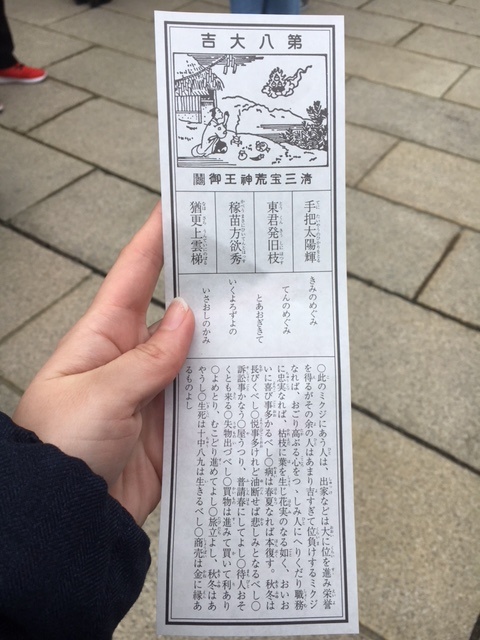 第八大吉
清三宝荒神王御鬮
手把太陽輝
東君発旧枝
稼苗方欲秀
猶更上雲梯
きみのめぐみ
てんのめぐみ
とあおぎきて
いくよろずよの
いさおしのかみ
〇此のミクジにあう人は、出家などは大に位を進み栄誉
を得るがその余の人はあまり吉すぎて位負けするミクジ
なれば、おごり高ぶる心をつゝしみ人にへりくだり職務
に忠実なれば、枯枝に葉を生じ花実のなる如く、おいお
いに喜び事多かるべし〇病は春夏なれば本復す。秋冬は
長びくべし〇悦事多けれど油断せば悲しみとなるべし〇
訴訟事かなう〇屋うつり、普請春にしてよし〇待人おそ
くとも来る〇失物出づべし〇買物は進みて買いて利あり
〇よめとり、むこどり進めてよし〇旅立よし、秋冬はあ
やうし〇生死は十中八九は生きるべし〇商売は金に縁あ
るものよし